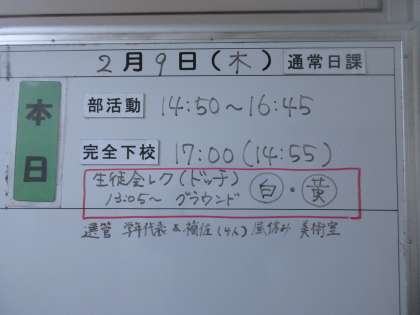 2月9日(木) 通常日課
本日
部活動 14:50～16:45
完全下校 17:00(14:55)
生徒会レク(ドッチ) 白・黄
13:05～ グラウンド
選管 学年代表&補佐(4人) 昼休み 美術室